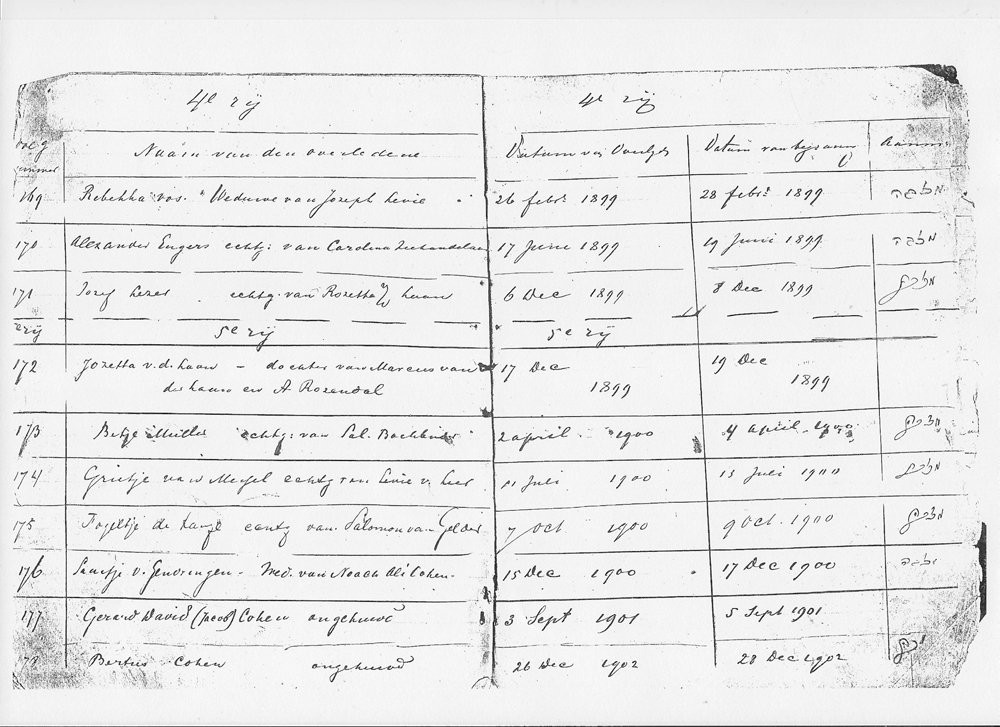 4e rij 4e rij
Naam van den overledene Datum van Overlijd Datum van begraven
169 Rebekka vos. Weduwe van Jozeph Levie 26 febr: 1899 28 febr: 1899 מצבה
170 Alexander Engers echtg: van Carolina 17 Juni 1899 19 Juni 1899 מצבה
171 Jozef Lezer echtg: van Rozetta v/d haam 6 Dec 1899 8 Dec 1899
rij 5e rij 5e rij
172 Jozetta v. d. haam – dochter van Marcus van 17 Dec 19 Dec
der haam en A Rozendal 1899 1899
173 Betje Muller echtg: van Sal. 2 april 1900 4 april 1900
174 Grietje van echtg van Levie v. Leer 11 Juli 1900 13 Juli 1900
175 de Lange echtg van Salomon van Gelder 7 Oct 1900 9 Oct. 1900
176 Saartje v. – Wed. van Noach Cohen – 15 Dec 1900 17 Dec 1900
177 Gerard David (Jacob) Cohen ongehuwd 3 Sept 1901 5 Sept 1901
Bertus Cohen ongehuwd 26 Dec 1902 28 Dec 1902